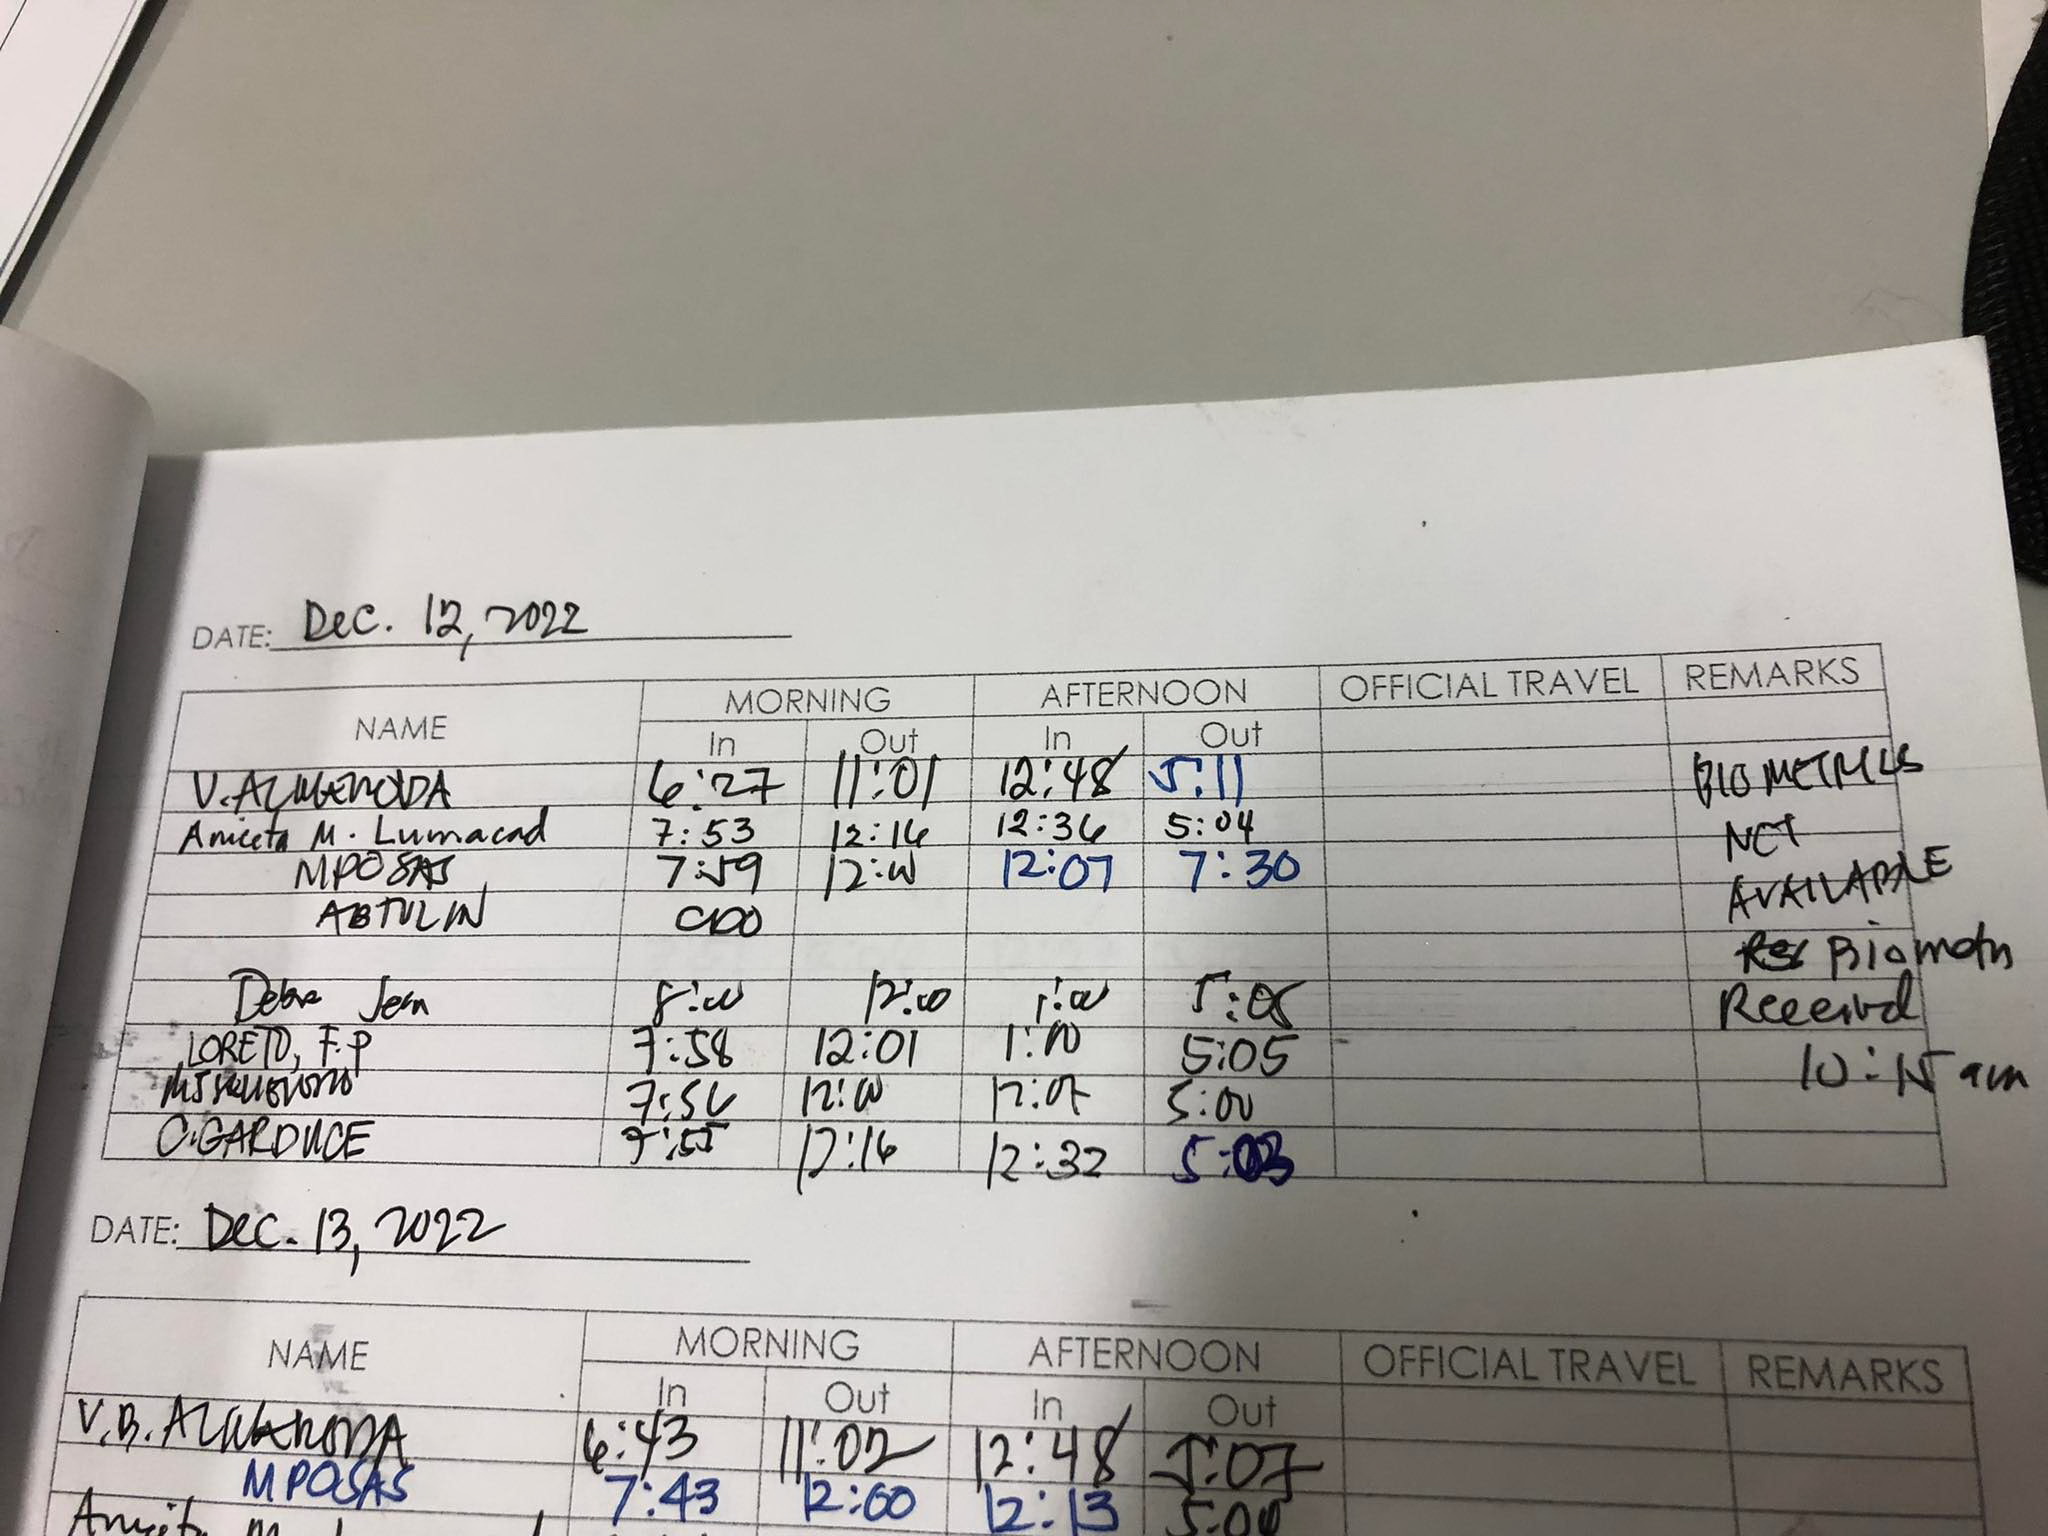 DATE: Dec. 12, 2022
NAME MORNING AFTERNOON OFFICIAL TRAVEL REMARKS
In Out In Out
6:27 11:01 12:48 5:11 BIOMETRICS
Aniceta M. Lumacad 7:53 12:16 12:36 5:04 NOT
MPOSAS 7:59 12:00 12:07 7:30 AVAILABLE
ABTULIN CDO
Jean 8:00 12:00 1:00 5:05 Received
LORETO, F.P 7:58 12:01 1:00 5:05 10:15 am
12:00 5:00
C.GARDUCE 7:55 12:16 12:32 5:03
DATE: Dec. 13, 2022
NAME MORNING AFTERNOON OFFICIAL TRAVEL REMARKS
In Out In Out
6:43 11:02 12:48 5:07
MPOSAS 7:43 12:00 12:13 5:00